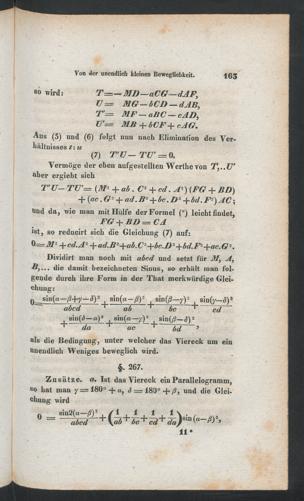 Von der unendlich kleinen Beweglichkeit. 163
so wird: T=—MD—aCG—dAF,
U= MG—bCD—dAB,
T'= MF—aBC—cAD,
U'= MB+bCF+cAG.
Aus (5) und (6) folgt nun nach Elimination des Ver-
hältnisses t:u
(7) T'U—TU'=0.
Vermöge der eben aufgestellten Werthe von T,..U'
aber ergibt sich
T'U—TU'=(M²+ab.C²+cd.A²)(FG+BD)
+(ac.G²+ad.B²+bc.D²+bd.F²)AC;
und da, wie man mit Hülfe der Formel (*) leicht findet,
FG+BD=CA
ist, so reducirt sich die Gleichung (7) auf:
0=M²+cd.A²+ad.B²+ab.C²+bc.D²+bd.F²+ac.G².
Dividirt man noch mit abcd und setzt für M, A,
B,... die damit bezeichneten Sinus, so erhält man fol-
gende durch ihre Form in der That merkwürdige Glei-
chung:
0=sin(α—β+γ—δ)²/abcd+sin(α—β)²/ab+sin(β—γ)²/bc+sin(γ—δ)²/cd
+sin(δ—α)²/da+sin(α—γ)²/ac+sin(β—δ)²/bd,
als die Bedingung, unter welcher das Viereck um ein
unendlich Weniges beweglich wird.
§. 267.
Zusätze. a. Ist das Viereck ein Parallelogramm,
so hat man γ=180°+α, δ=180°+β, und die Glei-
chung wird
0=sin2(α—β)²/abcd+(1/ab+1/bc+1/cd+1/da)sin(α—β)²,
11*